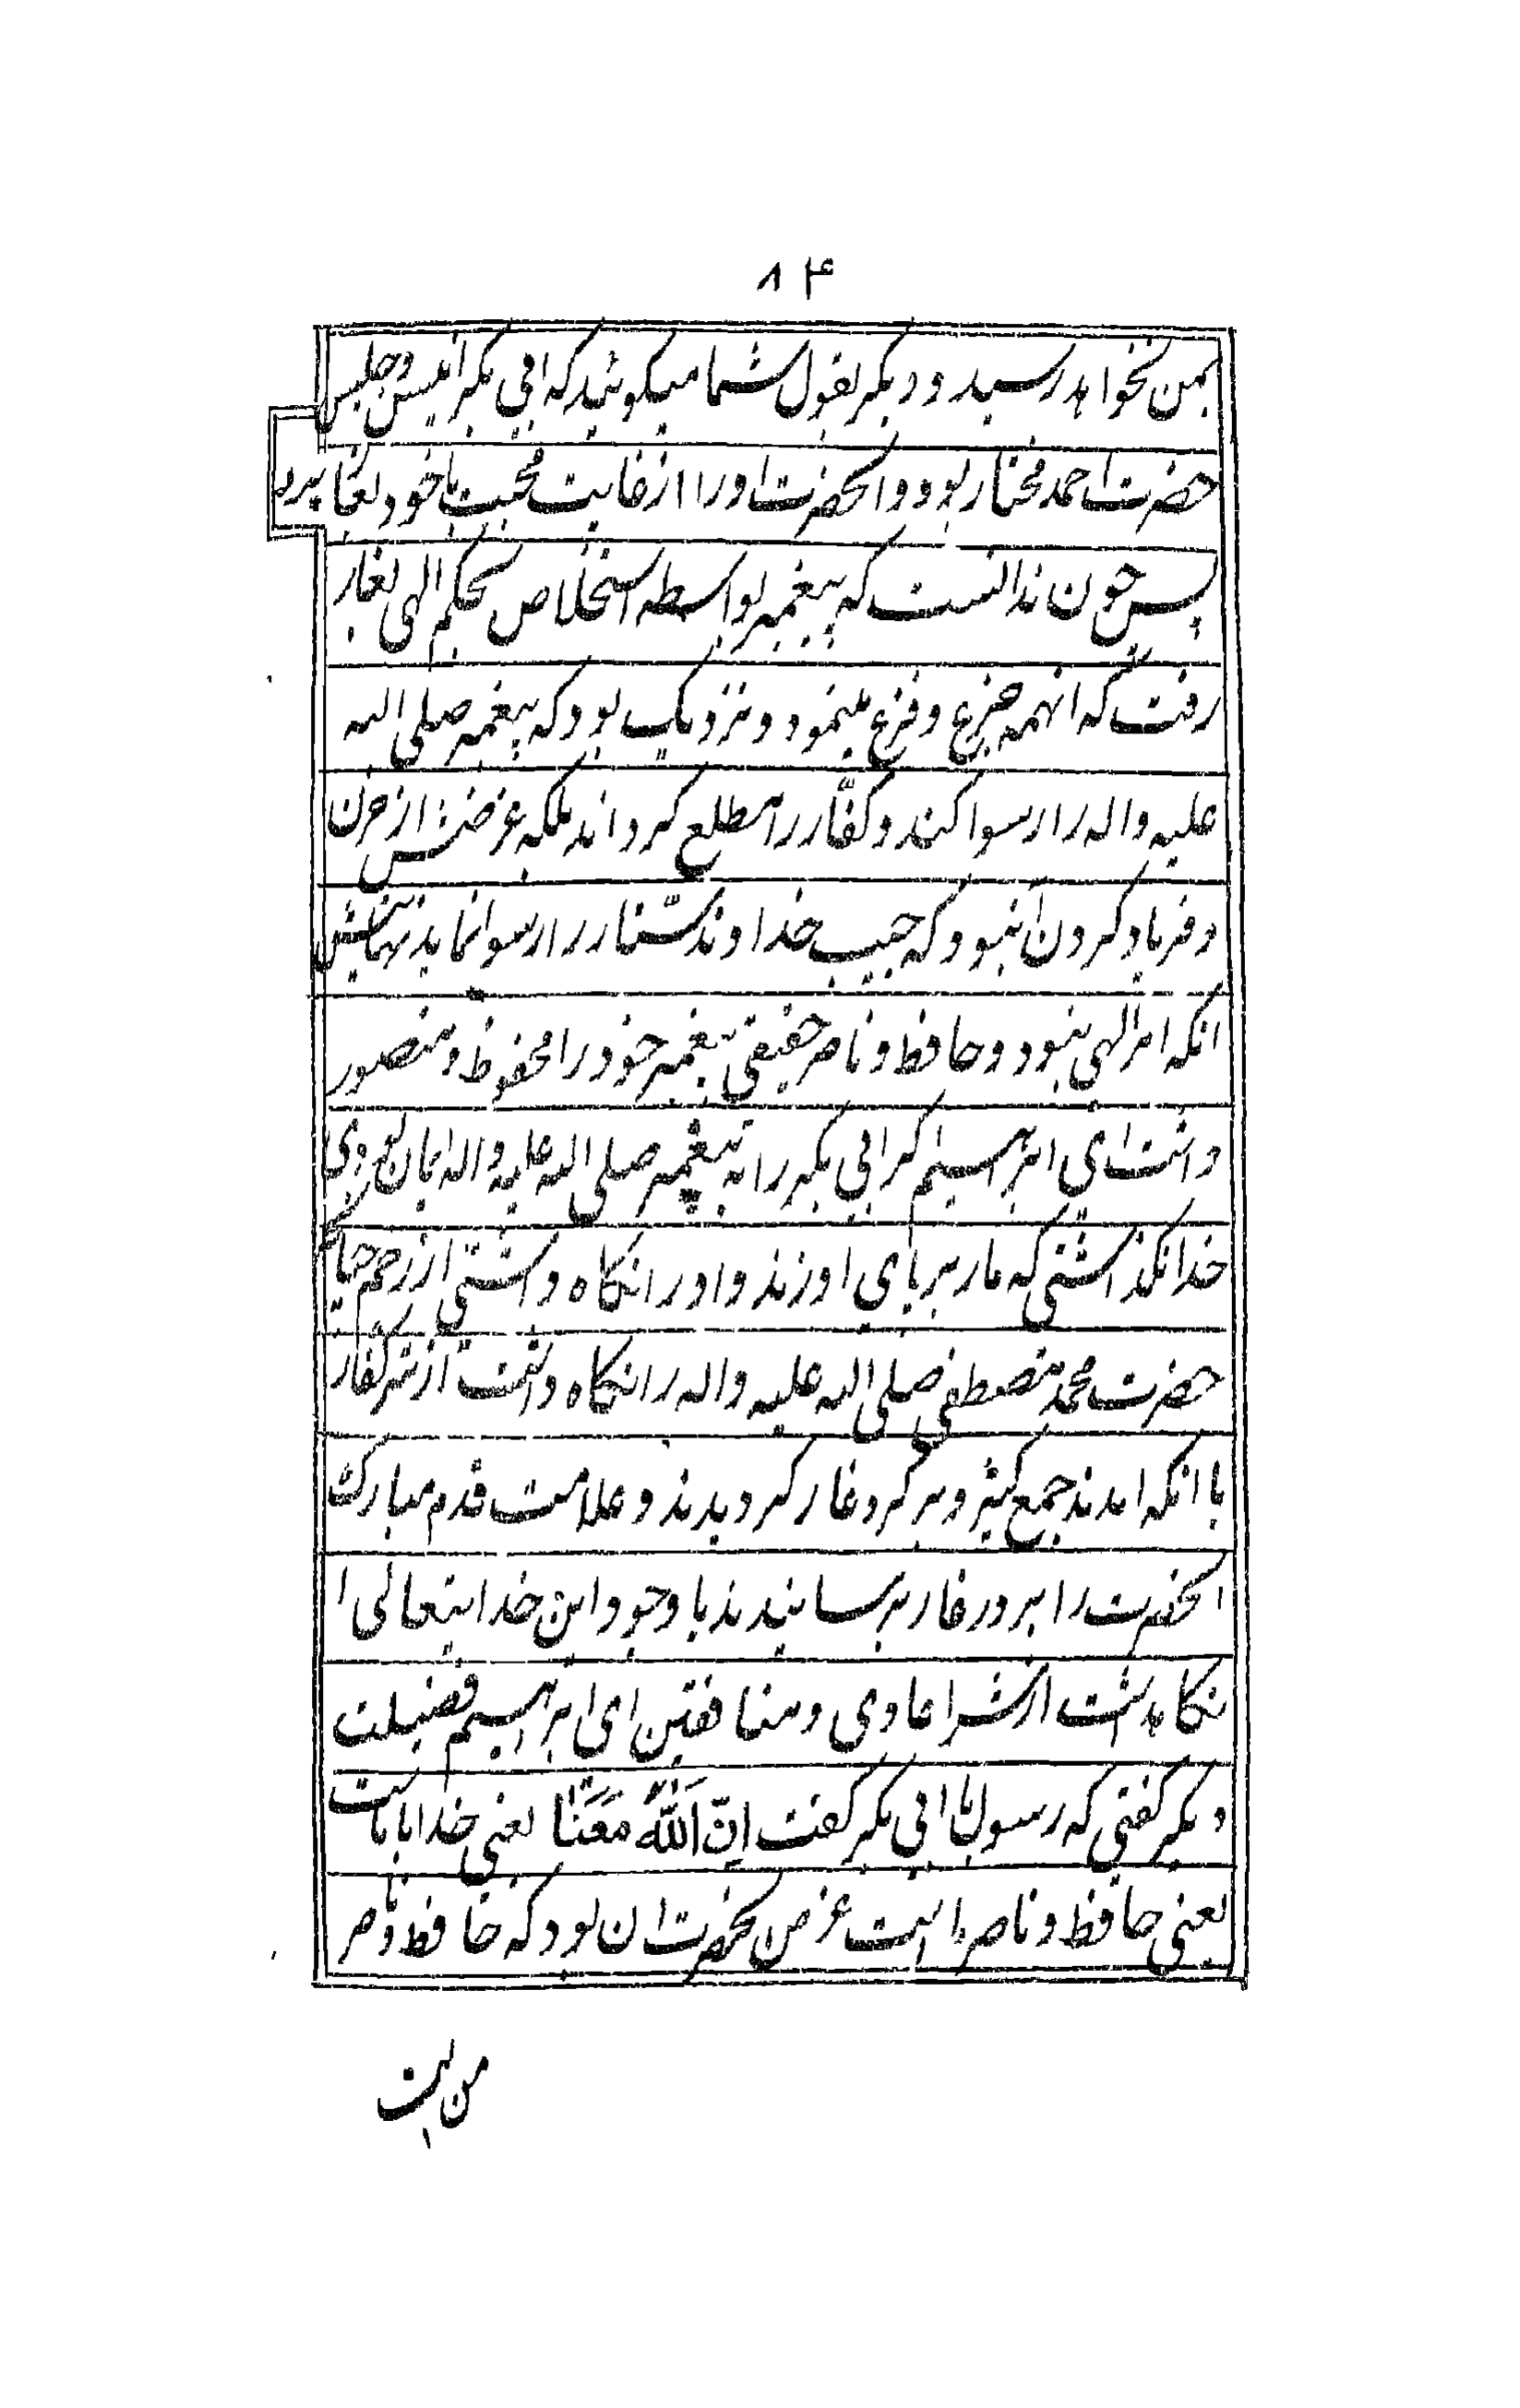 ۸۴
بمن نخواهد رسید و دیکر بقول شما میکوئید که ابی بکر انیس و جلیس
حضرت احمد مختار بود و انحضرت او را از غایت محبت با خود بغار برد
پس چون ندانست که پیغمبر بواسطه استخلاص بحکم الهی بغار
رفت که انهمه جزع و فزع مینمود و نزدیک بود که پیغمبر صلی الله
علیه و اله را رسوا کند و کفّار را مطلع کرداند بلکه غرضش از حزن
و فریاد کردن ان بود که حبیب خداوند ستّار را رسوا نماید نهایتش
انکه امر الهی نبود و حافظ و ناصر حقیقی پیغمبر خود را محفوظ و منصور
داشت ای ابراهیم اکر ابی بکر را به پیغمبر صلی الله علیه و اله ایمان بودی
خدا نکذاشتی که مار بر پای او زند و او را نکاه داشتی از زخم
حضرت محمد مصطفی صلی الله علیه و اله را نکاه داشت از شر کفار
با انکه امدند جمع کثیر و بر کرد غار کردیدند و علامت قدم مبارک
انحضرت را بر در غار برسانیدند با وجود این خدایتعالی او را
نکاهداشت از شر اعادی و منافقین ای ابراهیم فضیلت
دیکر کفتی که رسول با ابی بکر کفت اِنّ اَللّٰهَ مَعَنٰا یعنی خدا با ماست
یعنی حافظ و ناصر ماست غرض انحضرت ان بود که حافظ و ناصر
من است